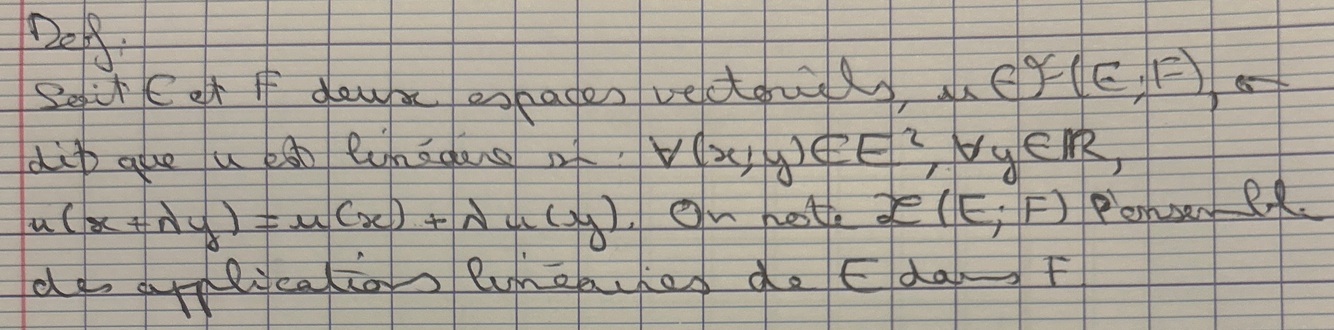 Def:
Soit E et F deux espaces vectoriels, u ∈ F(E;F), on
dit que u est linéaire si: ∀(x;y)∈E², ∀y∈ℝ,
u(x+λy)=u(x)+λu(y). On note L(E;F) l'ensemble
des applications linéaires de E dans F